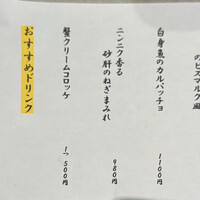 のビスマルク風
白身魚のカルパッチョ
1100円
ニンニク香る
砂肝のねぎまみれ
980円
蟹クリームコロッケ
1つ 500円
おすすめドリンク